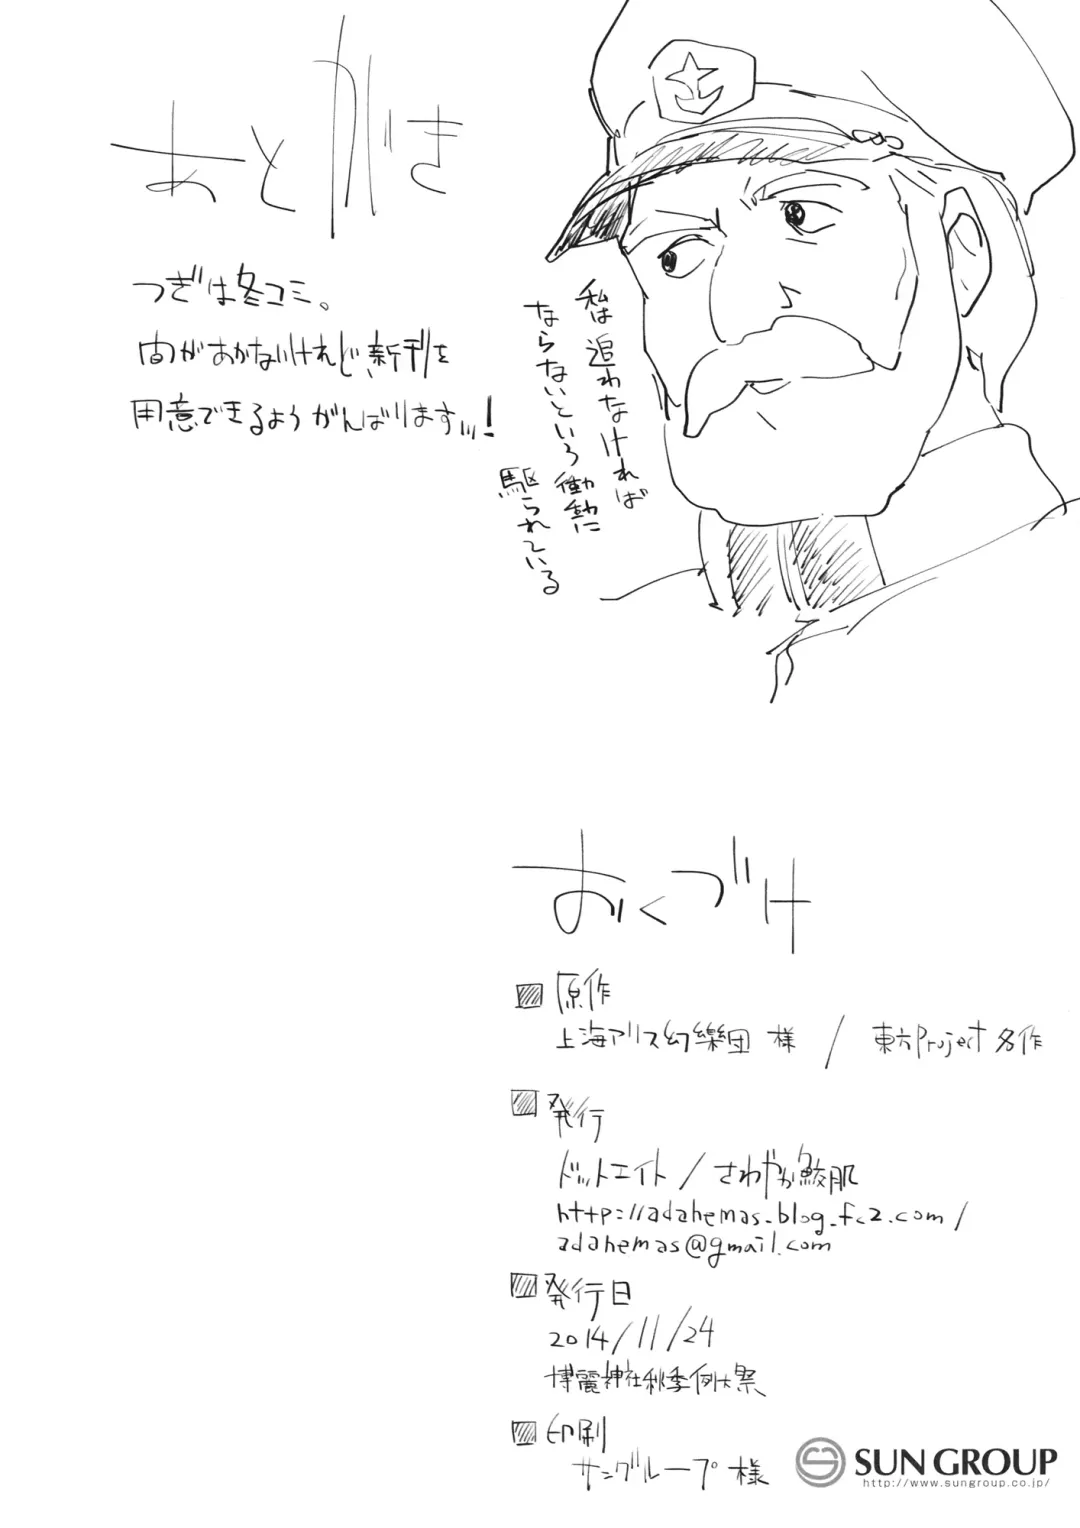 あとがき
つぎは冬コミ。
間があかないけれど、新刊を
用意できるようがんばりますッ!
私は追わなければ
ならないという衝動に
駆られている
おくづけ
原作
上海アリス幻樂団 様 / 東方Project 各作
発行
ドットエイト / さわやか鮫肌
http://adahemas.blog.fc2.com/
adahemas@gmail.com
発行日
2014/11/24
博麗神社秋季例大祭
印刷
サングループ 様
SUN GROUP
http://www.sungroup.co.jp/